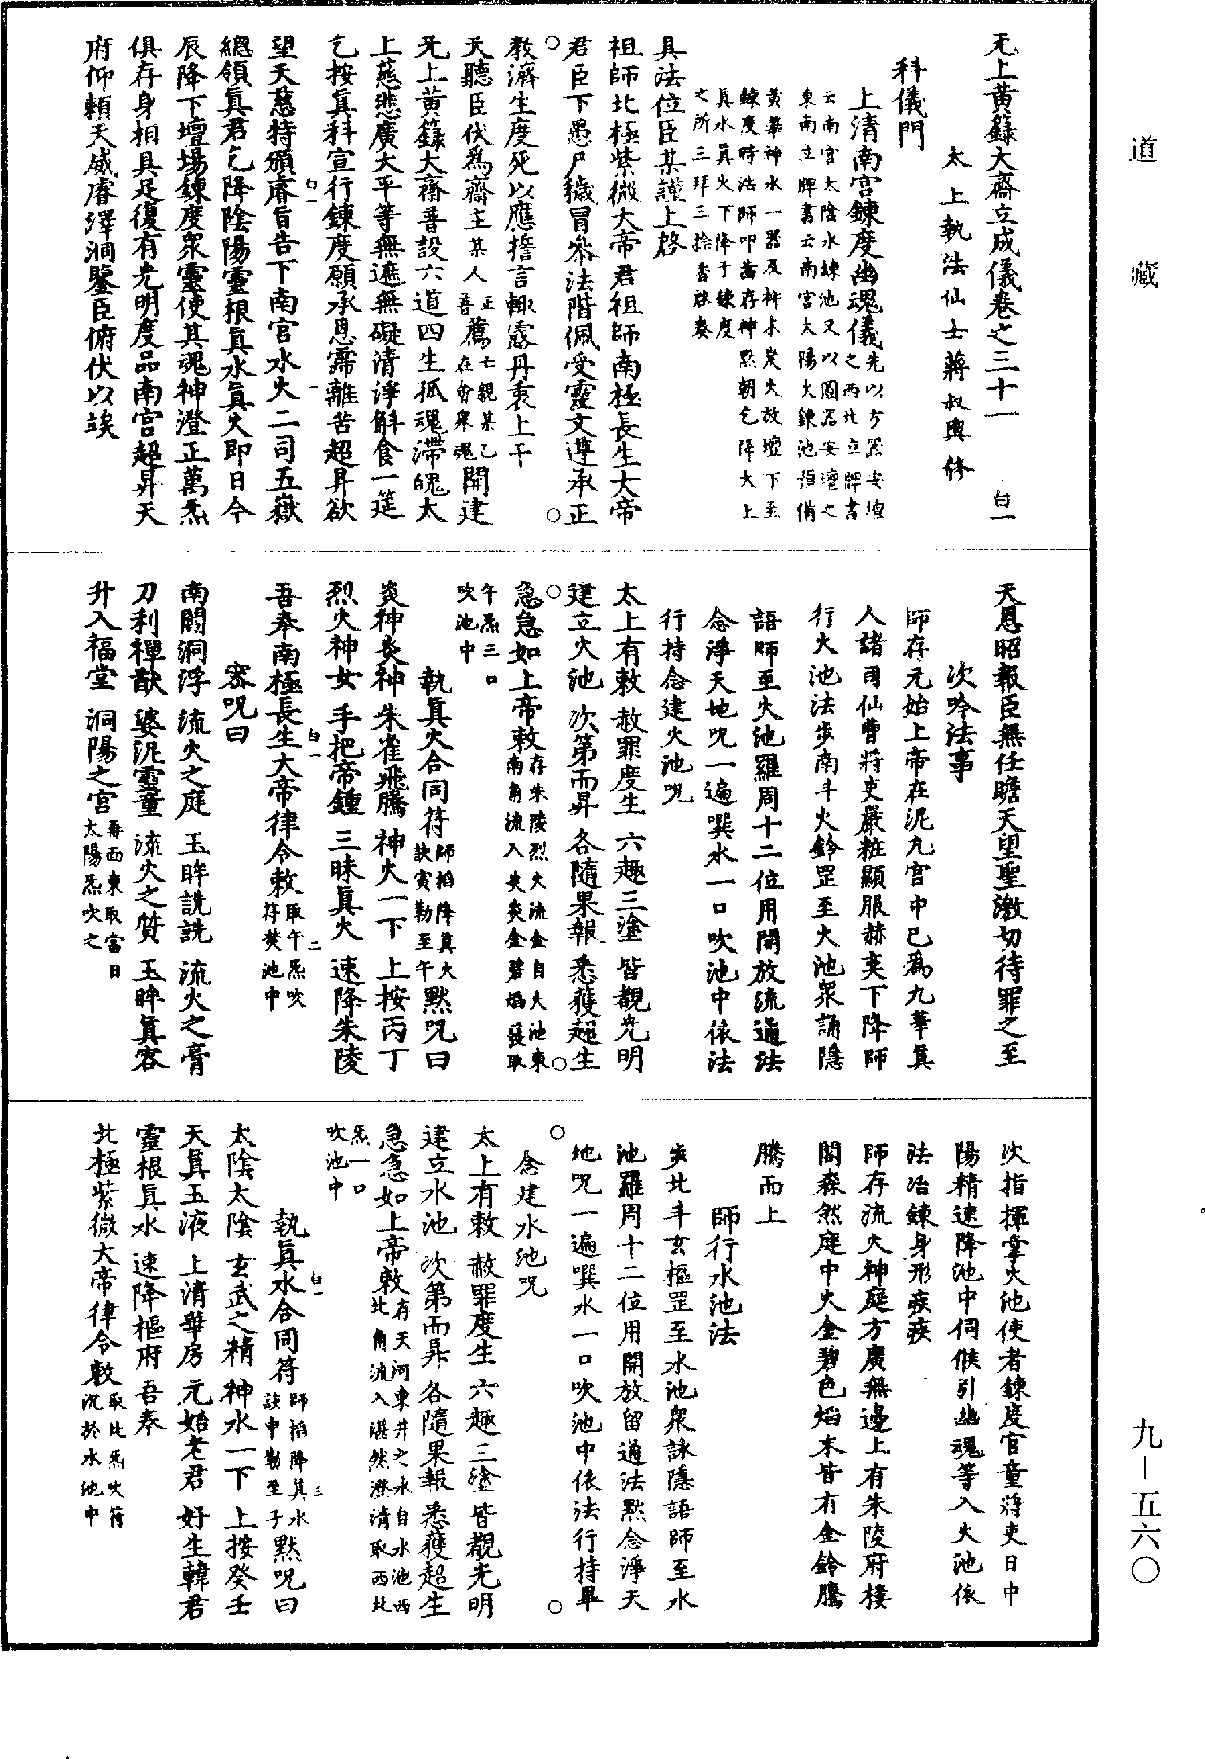 道藏
九—五六〇
无上黃籙大齋立成儀卷之三十一 白一
太上執法仙士蔣叔輿修
科儀門
上清南宮鍊度幽魂儀先以方器安壇之西北立牌書
云南宮太陰水鍊池又以圓器安壇之東南立牌書云南宮太陽火鍊池預備
黃華神水一器及柞木炭火放壇下至鍊度時法師叩齒存神默朝乞降太上
真水真火下降于鍊度之所三拜三捻香啟奏
具法位臣某謹上啓
祖師北極紫微大帝君祖師南極長生大帝
君臣下愚尸穢冒叅法階佩受靈文遵承正
教濟生度死以應誓言輒瀝丹衷上干
天聽臣伏爲齋主某人正薦亡親某乙普薦在會眾魂開建
无上黃籙大齋普設六道四生孤魂滯魄太
上慈悲廣大平等無遮無礙清淨斛食一筵
乞按真科宣行鍊度願承恩霈離苦超昇欲
望天慈特頒睿旨告下南宮水火二司五嶽
總領真君乞降陰陽靈根真水真火即日今
辰降下壇場鍊度眾靈使其魂神澄正萬炁
俱存身相具足復有光明度品南宮超昇天
府仰賴天威睿澤洞鑒臣俯伏以竢
天恩昭報臣無任瞻天望聖激切待罪之至
次吟法事
師存元始上帝在泥丸宮中已爲九華真
人諸司仙曹將吏嚴粧顯服赫奕下降師
行火池法步南斗火鈴罡至火池眾誦隱
語師至火池羅周十二位用開放流通法
念淨天地呪一遍噀水一口吹池中依法
行持念建火池呪
太上有敕 赦罪度生 六趣三塗 皆覩光明
建立火池 次第而昇 各隨果報 悉獲超生
急急如上帝敕存朱陵烈火流金自火池東南角流入炎炎金碧焰發取
午炁三口吹池中
執真火合同符師掐降真火訣寅勒至午默呪曰
炎神炎神 朱雀飛騰 神火一下 上按丙丁
烈火神女 手把帝鍾 三昧真火 速降朱陵
吾奉南極長生大帝律令敕取午炁吹符焚池中
密呪曰
南閻洞浮 流火之庭 玉眸詵詵 流火之膏
刀利禪猷 婆泥靈童 流火之質 玉眸真容
升入福堂 洞陽之宮再面東取當日太陽炁吹之
次指揮掌火池使者鍊度官童蔣吏日中
陽精速降池中伺候引幽魂等入火池依
法冶鍊身形痰疾
師存流火神庭方廣無邊上有朱陵府樓
閣森然庭中火金碧色焰本皆有金鈴騰
騰而上
師行水池法
步北斗玄樞罡至水池眾詠隱語師至水
池羅周十二位用開放留通法默念淨天
地呪一遍噀水一口吹池中依法行持畢
念建水池呪
太上有敕 赦罪度生 六趣三塗 皆覩光明
建立水池 次第而昇 各隨果報 悉獲超生
急急如上帝敕存天河東井之水自水池西北角流入湛然澄清取西北
炁一口吹池中
執真水合同符師掐降真水訣申勒至子默呪曰
太陰太陰 玄武之精 神水一下 上按癸壬
天真玉液 上清華房 元始老君 好生韓君
靈根真水 速降樞府 吾奉
北極紫微大帝律令敕取北炁吹符沉於水池中